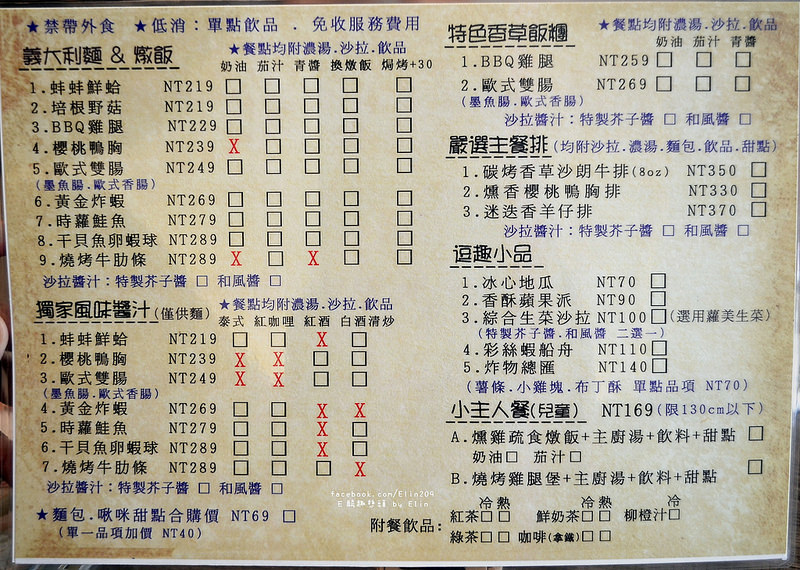 ★禁帶外食 ★低消:單點飲品.免收服務費用
義大利麵 & 燉飯
★餐點均附濃湯.沙拉.飲品
奶油 茄汁 青醬 換燉飯 焗烤+30
1.蚌蚌鮮蛤 NT219 □ □ □ □ □
2.培根野菇 NT219 □ □ □ □ □
3.BBQ雞腿 NT229 □ □ □ □ □
4.櫻桃鴨胸 NT239 X □ □ □ □
5.歐式雙腸 NT249 □ □ □ □ □
(墨魚腸.歐式香腸)
6.黃金炸蝦 NT269 □ □ □ □ □
7.時蘿鮭魚 NT279 □ □ □ □ □
8.干貝魚卵蝦球 NT289 □ □ □ □ □
9.燒烤牛肋條 NT289 X □ X □ □
沙拉醬汁:特製芥子醬 □ 和風醬 □
獨家風味醬汁(僅供麵)
★餐點均附濃湯.沙拉.飲品
泰式 紅咖哩 紅酒 白酒清炒
1.蚌蚌鮮蛤 NT219 □ □ X □
2.櫻桃鴨胸 NT239 X X □ □
3.歐式雙腸 NT249 X X □ □
(墨魚腸.歐式香腸)
4.黃金炸蝦 NT269 □ □ X X
5.時蘿鮭魚 NT279 □ □ X □
6.干貝魚卵蝦球 NT289 □ □ X □
7.燒烤牛肋條 NT289 □ □ □ X
沙拉醬汁:特製芥子醬 □ 和風醬 □
★麵包.啾咪甜點合購價 NT69 □
(單一品項加價 NT40)
特色香草飯糰
★餐點均附濃湯.沙拉.飲品
奶油 茄汁 青醬
1.BBQ雞腿 NT259 □ □ □
2.歐式雙腸 NT269 □ □ □
(墨魚腸.歐式香腸)
沙拉醬汁:特製芥子醬 □ 和風醬 □
嚴選主餐排(均附沙拉.濃湯.麵包.飲品.甜點)
1.碳烤香草沙朗牛排(8oz) NT350 □
2.燻香櫻桃鴨胸排 NT330 □
3.迷迭香羊仔排 NT370 □
沙拉醬汁:特製芥子醬 □ 和風醬 □
逗趣小品
1.冰心地瓜 NT70 □
2.香酥蘋果派 NT90 □
3.綜合生菜沙拉NT100□(選用蘿美生菜)
(特製芥子醬.和風醬 二選一)
4.彩絲蝦船舟 NT110□
5.炸物總匯 NT140□
(薯條.小雞塊.布丁酥 單點品項 NT70)
小主人餐(兒童) NT169(限130cm以下)
A.燻雞疏食燉飯+主廚湯+飲料+甜點 □
奶油□ 茄汁□
B.燒烤雞腿堡+主廚湯+飲料+甜點 □
附餐飲品:
冷 熱 冷 熱 冷
紅茶□□ 鮮奶茶□□ 柳橙汁□
綠茶□□ 咖啡(拿鐵)□□
facebook.com/Elin204
by Elin